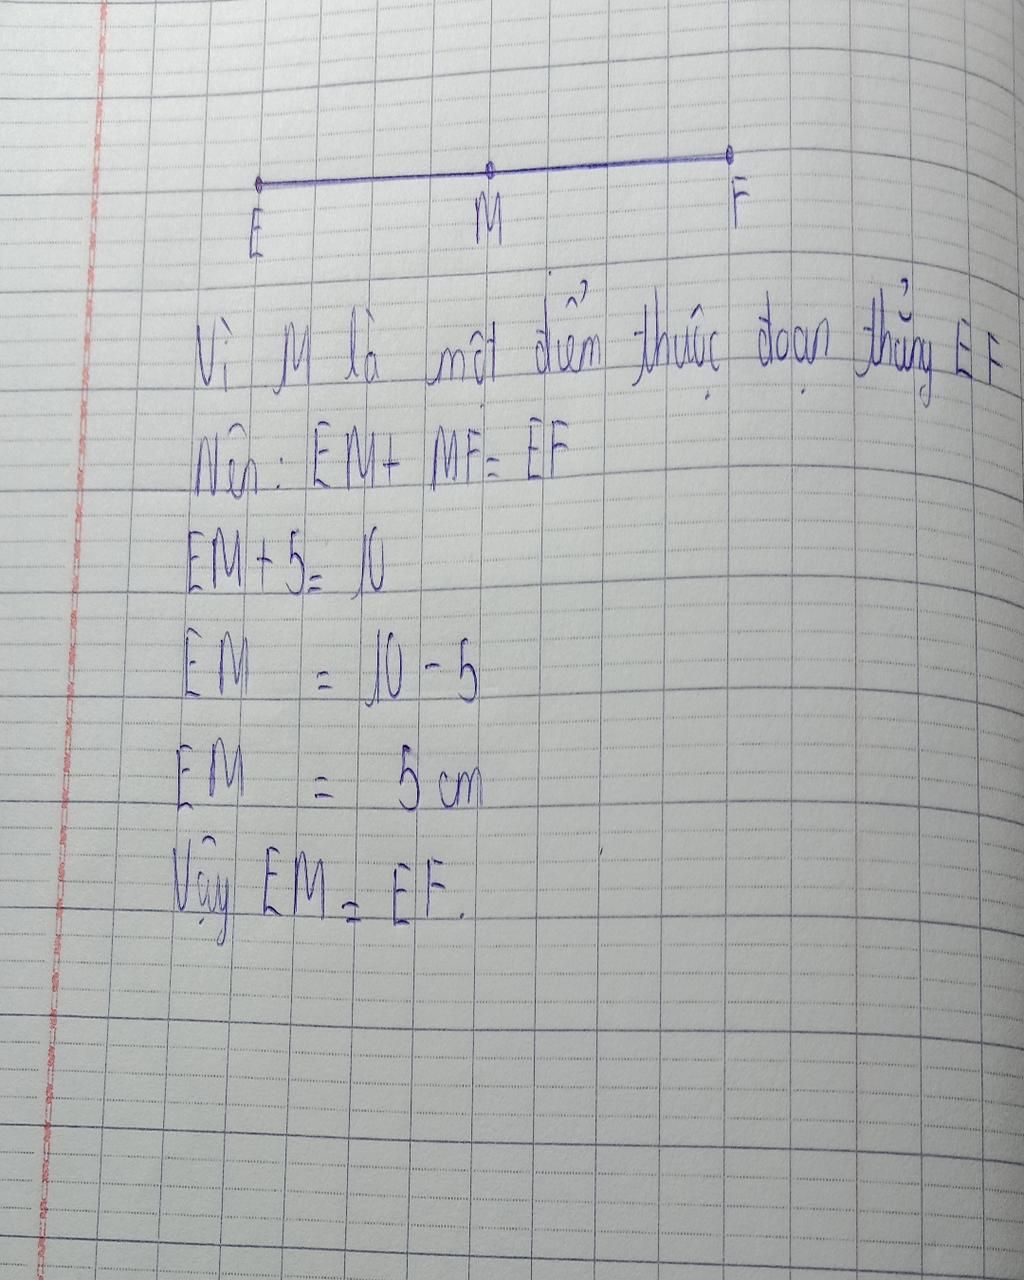 E M F
Vì M là một điểm thuộc đoạn thẳng EF
Nên: EM + MF = EF
EM + 5 = 10
EM = 10 - 5
EM = 5 cm
Vậy EM = EF.